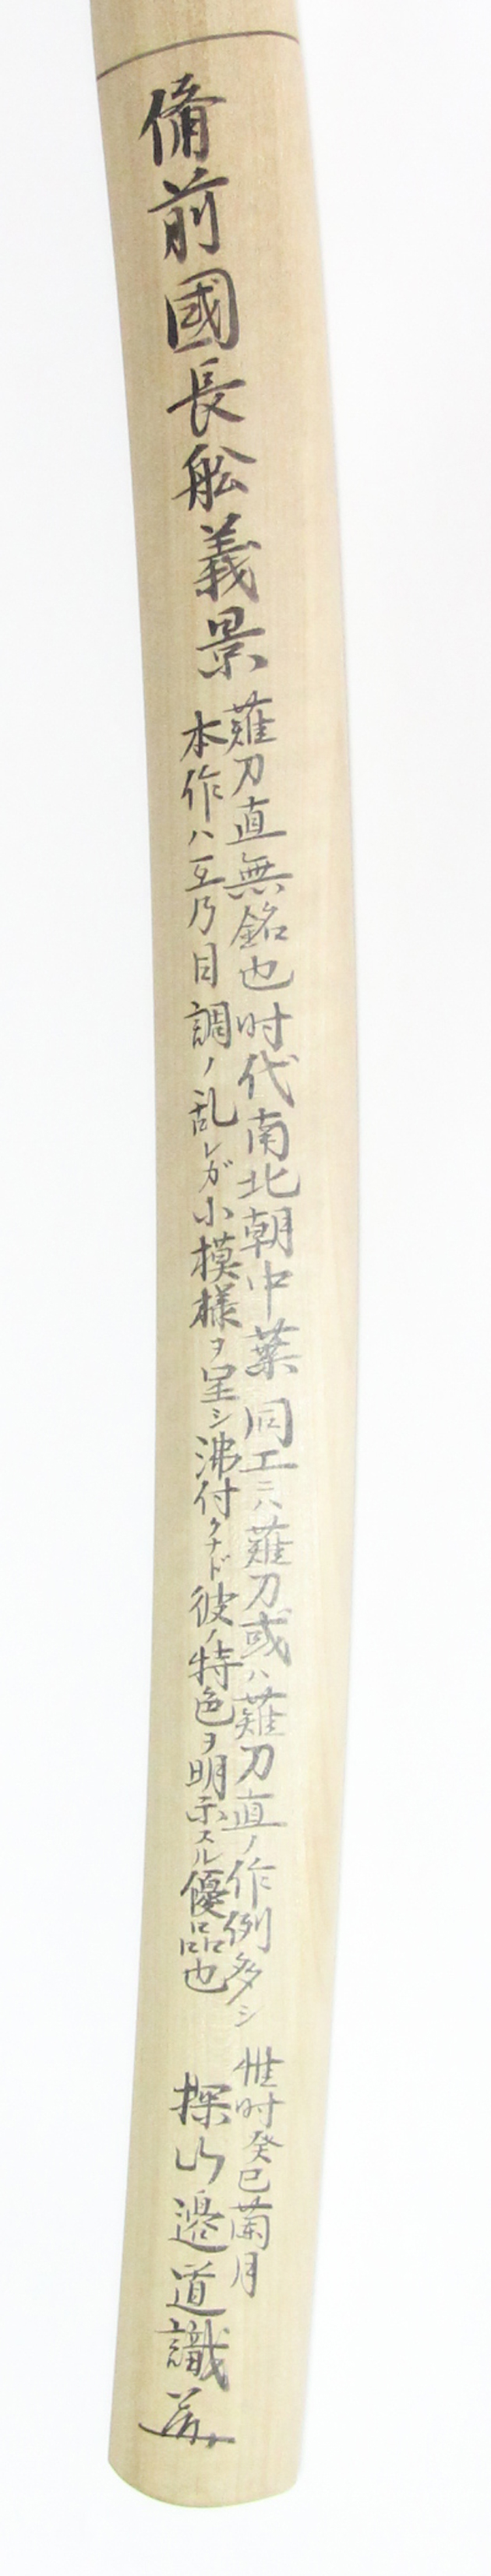 備前國長舩義景
薙刀直無銘也时代南北朝中葉同工ニハ薙刀或ハ薙刀直ノ作例多シ
本作ハ互乃目調ノ乱レガ小模様ヲ呈シ沸付クナド彼ノ特色ヲ明示スル優品也
惟时癸巳蘭月
探山邉道識